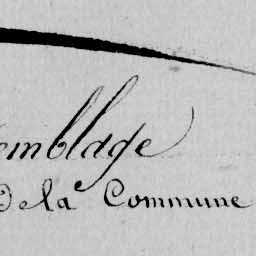 emblage
De la Commune